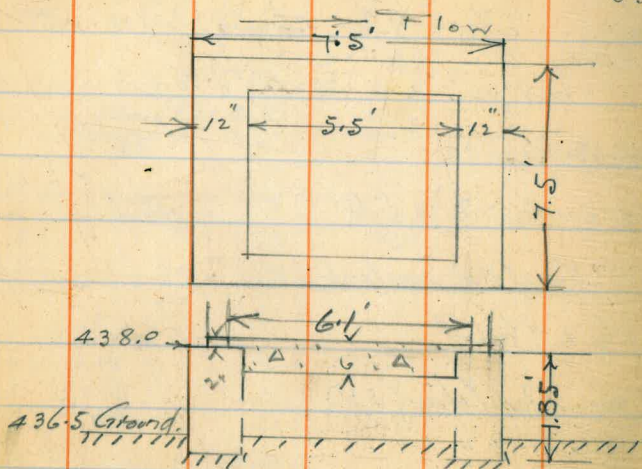 Flow
7.5'
12" 5.5' 12"
7.5'
6.1'
438.0
6
2"
1.85'
436.5 Ground.